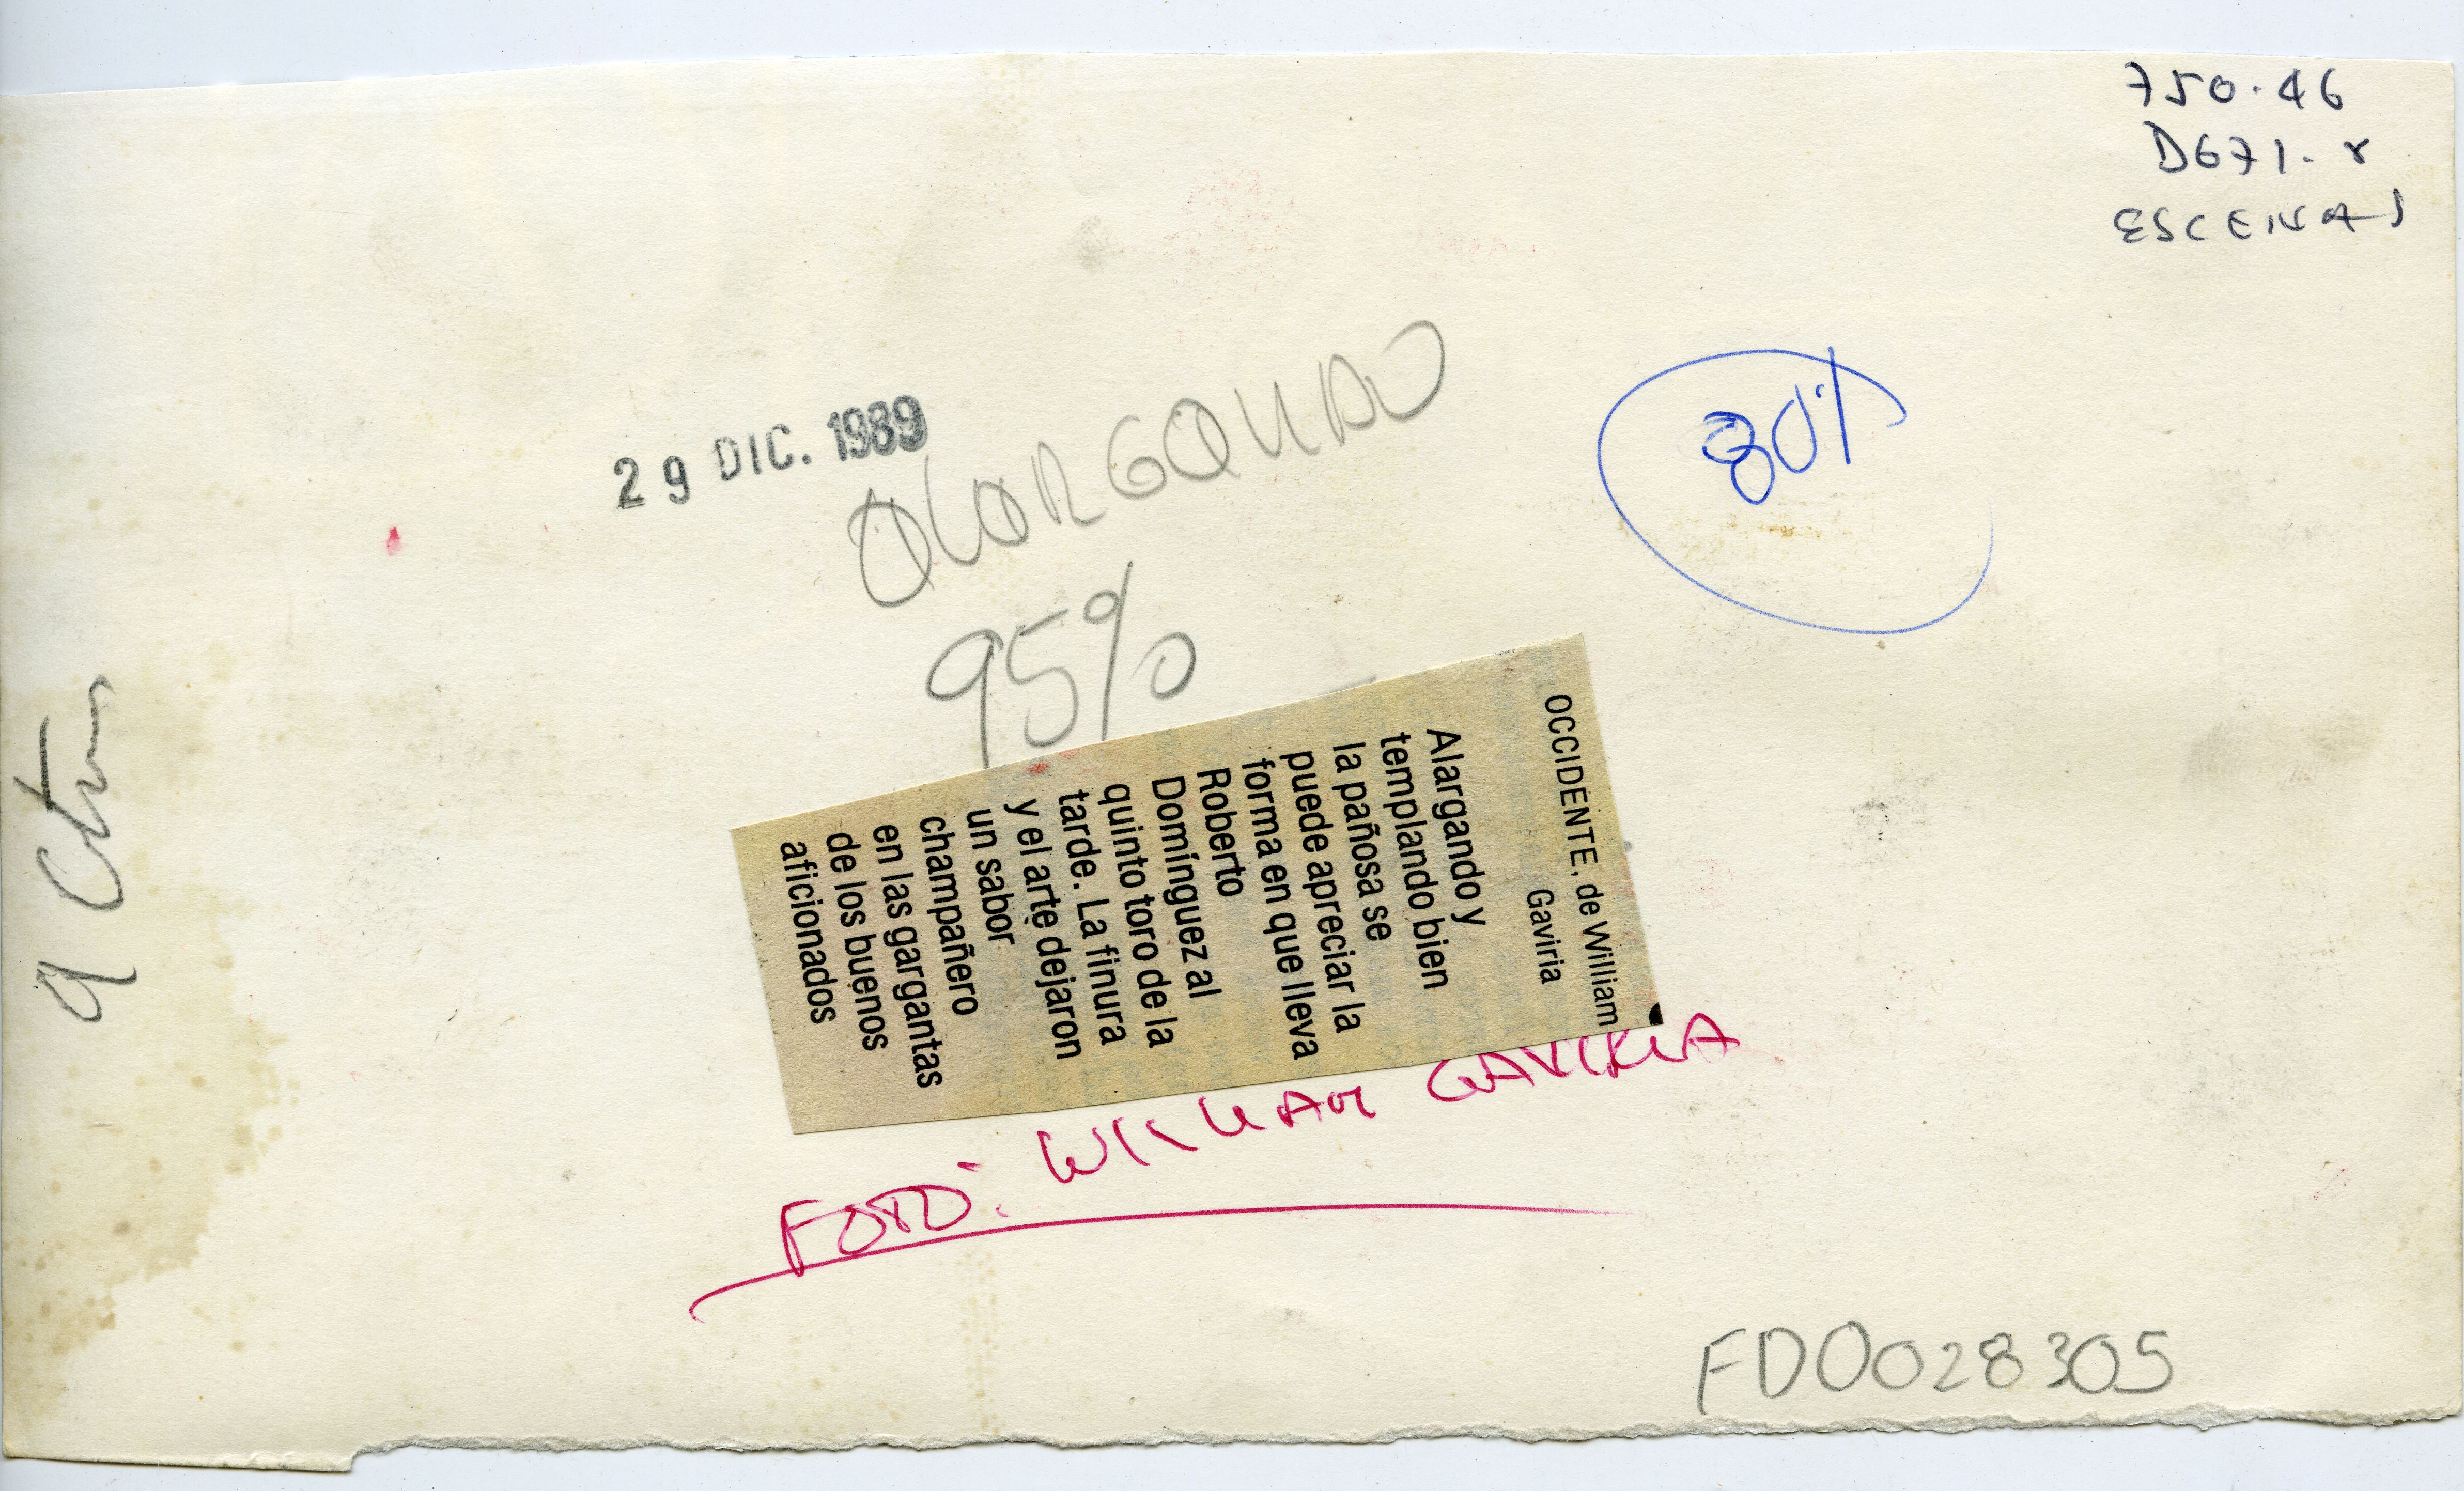 750.46
D671.r
ESCENAS
29 DIC. 1989
ALARGANDO
95%
80%
9 Ctms
OCCIDENTE, de William
Gaviria
Alargando y
templando bien
la pañosa se
puede apreciar la
forma en que lleva
Roberto
Domínguez al
quinto toro de la
tarde. La finura
y el arte dejaron
un sabor
champañero
en las gargantas
de los buenos
aficionados
FOTO: WILLIAM GAVIRIA
FD0028305